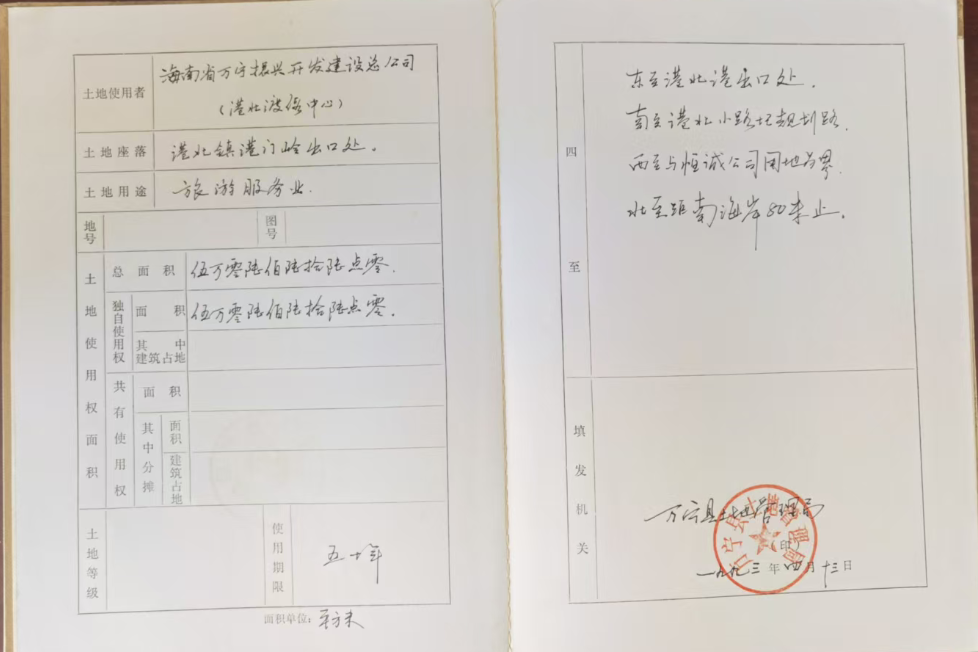 土地使用者 海南省万宁振兴开发建设总公司
（港北渡假中心）
土地座落 港北镇港门岭出口处.
土地用途 旅游服务业.
地号 图号
土地使用权面积
总面积 伍万零陆佰陆拾陆点零.
独自使用权 面积 伍万零陆佰陆拾陆点零.
其中建筑占地
共有使用权 面积
其中分摊 面积
建筑占地
土地等级 使用期限 五十年
面积单位: 平方米
四至
东至港北港出口处.
南至港北小路规划路.
西至与恒诚公司用地为界.
北至距南海岸80米止.
填发机关
万宁县土地管理局
(印)
一九九三年四月十三日
万宁县土地管理局